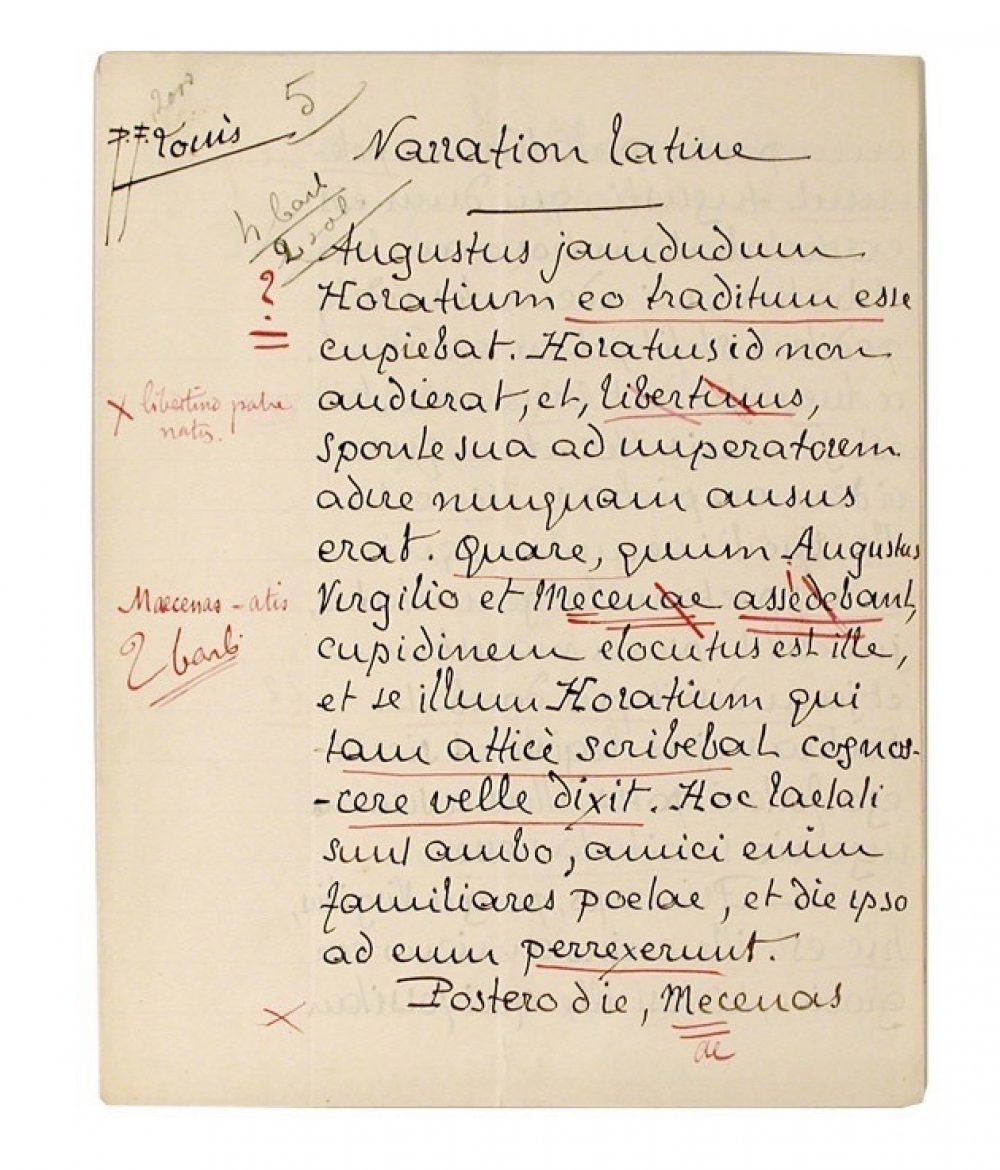 5
P. F. Louis
Narration latine
4 barb
2 sol
Augustus jamdudum
?
Horatium eo traditum esse
cupiebat. Horatius id non
× libertino patre
natus.
audierat, et, libertinus,
sponte sua ad imperatorem
adire nunquam ausus
erat. Quare, quum Augustus
Maecenas -atis
Virgilio et Mecenae assedebant,
2 barb
cupidinem elocutus est ille,
et se illum Horatium qui
tam atticè scribebat cognos-
-cere velle dixit. Hoc laetati
sunt ambo, amici enim
familiares poetae, et die ipso
ad eum perrexerunt.
×
Postero die, Mecenas
ae